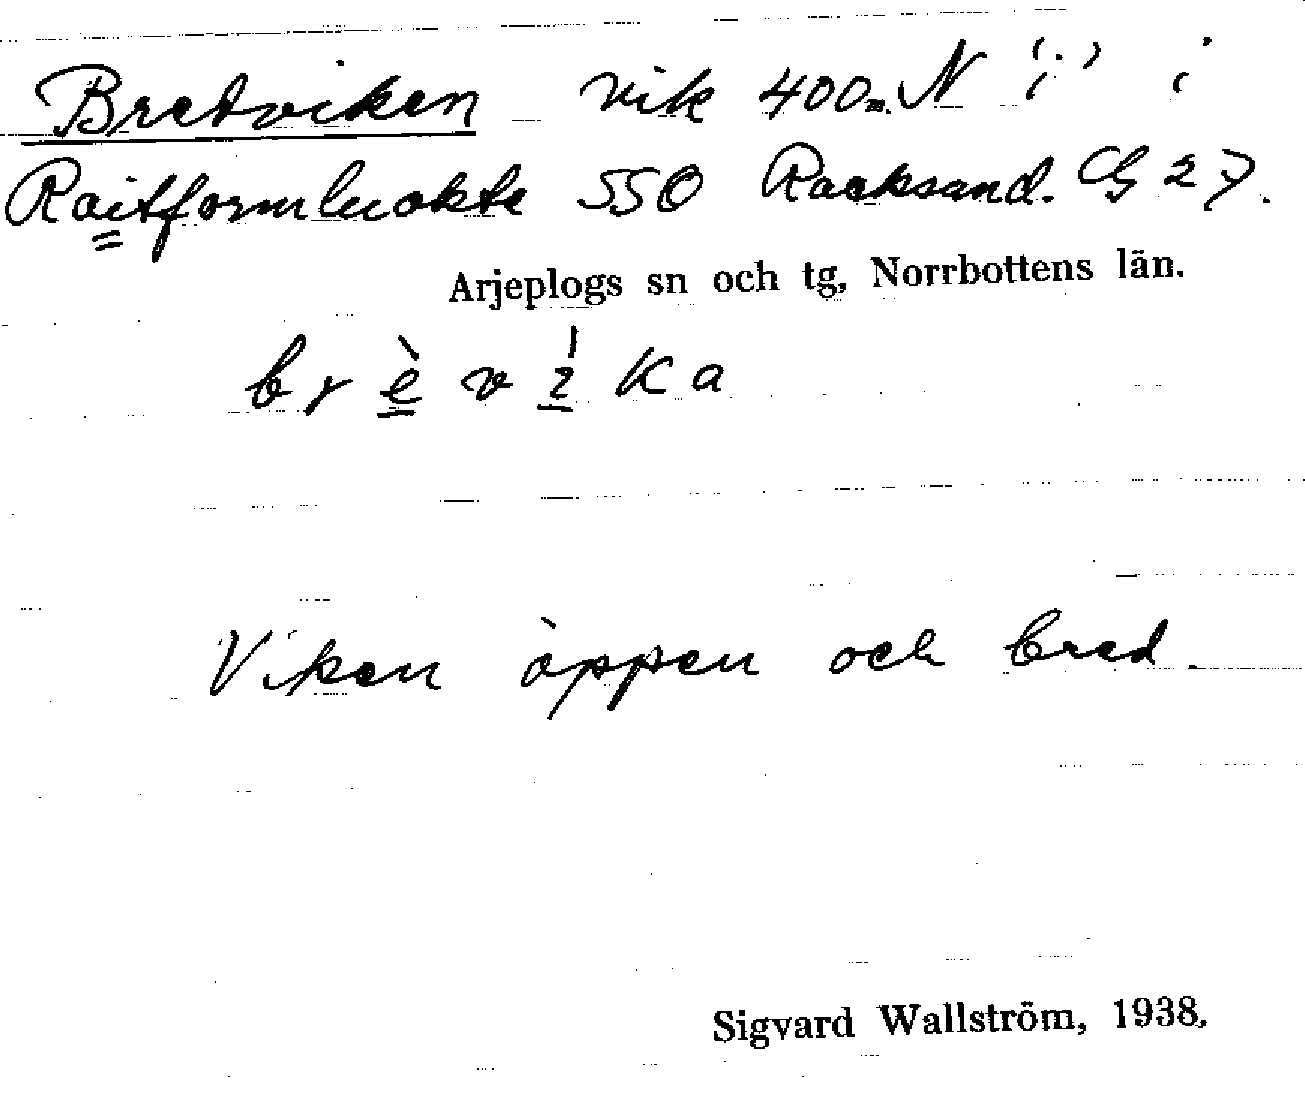 Bredviken vik 400 m. N "i" i
Raitformluokte 550 Racksund. G 27.
Arjeplogs sn och tg, Norrbottens län.
br è v ı̍ k a
Viken öppen och bred
Sigvard Wallström, 1938.